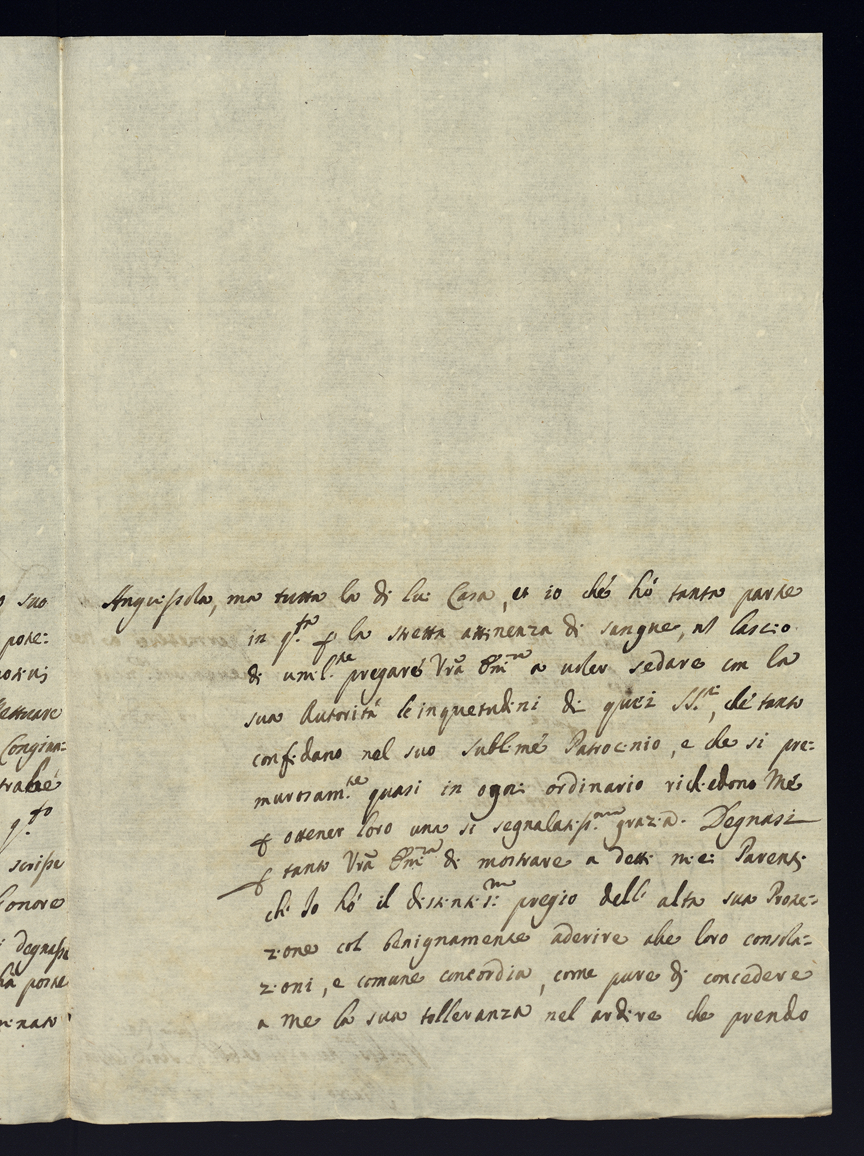 o suo
pote=
motivi
Congiun=
q.to
scrisse
honore
degnassi
porte
minato
Anguissola, ma tutta la di lui Casa, et io ché hó tanta parte
in q.ta ꝑ la stretta attinenza di sangue, nō lascio
di umil.te pregaré Vrã Emza a voler sedare con la
sua Autoritá le inquetudini di quei SS.ri, ché tanto
confidano nel suo sublimé Patrocinio, e che si pre=
murosam.te quasi in ogni ordinario richiedono Mé
ꝑ ottener loro una si segnalatiss.ma grazia. Degnasi
ꝑ tanto Vrã Emza di mostrare a detti miei Parenti
chi Io hó il distintis.mo pregio dell' alta sua Prote=
zione col benignamente aderire alle loro consola=
zioni, e comune concordia, come pure di concedere
a me la sua tolleranza nel ardire che prendo